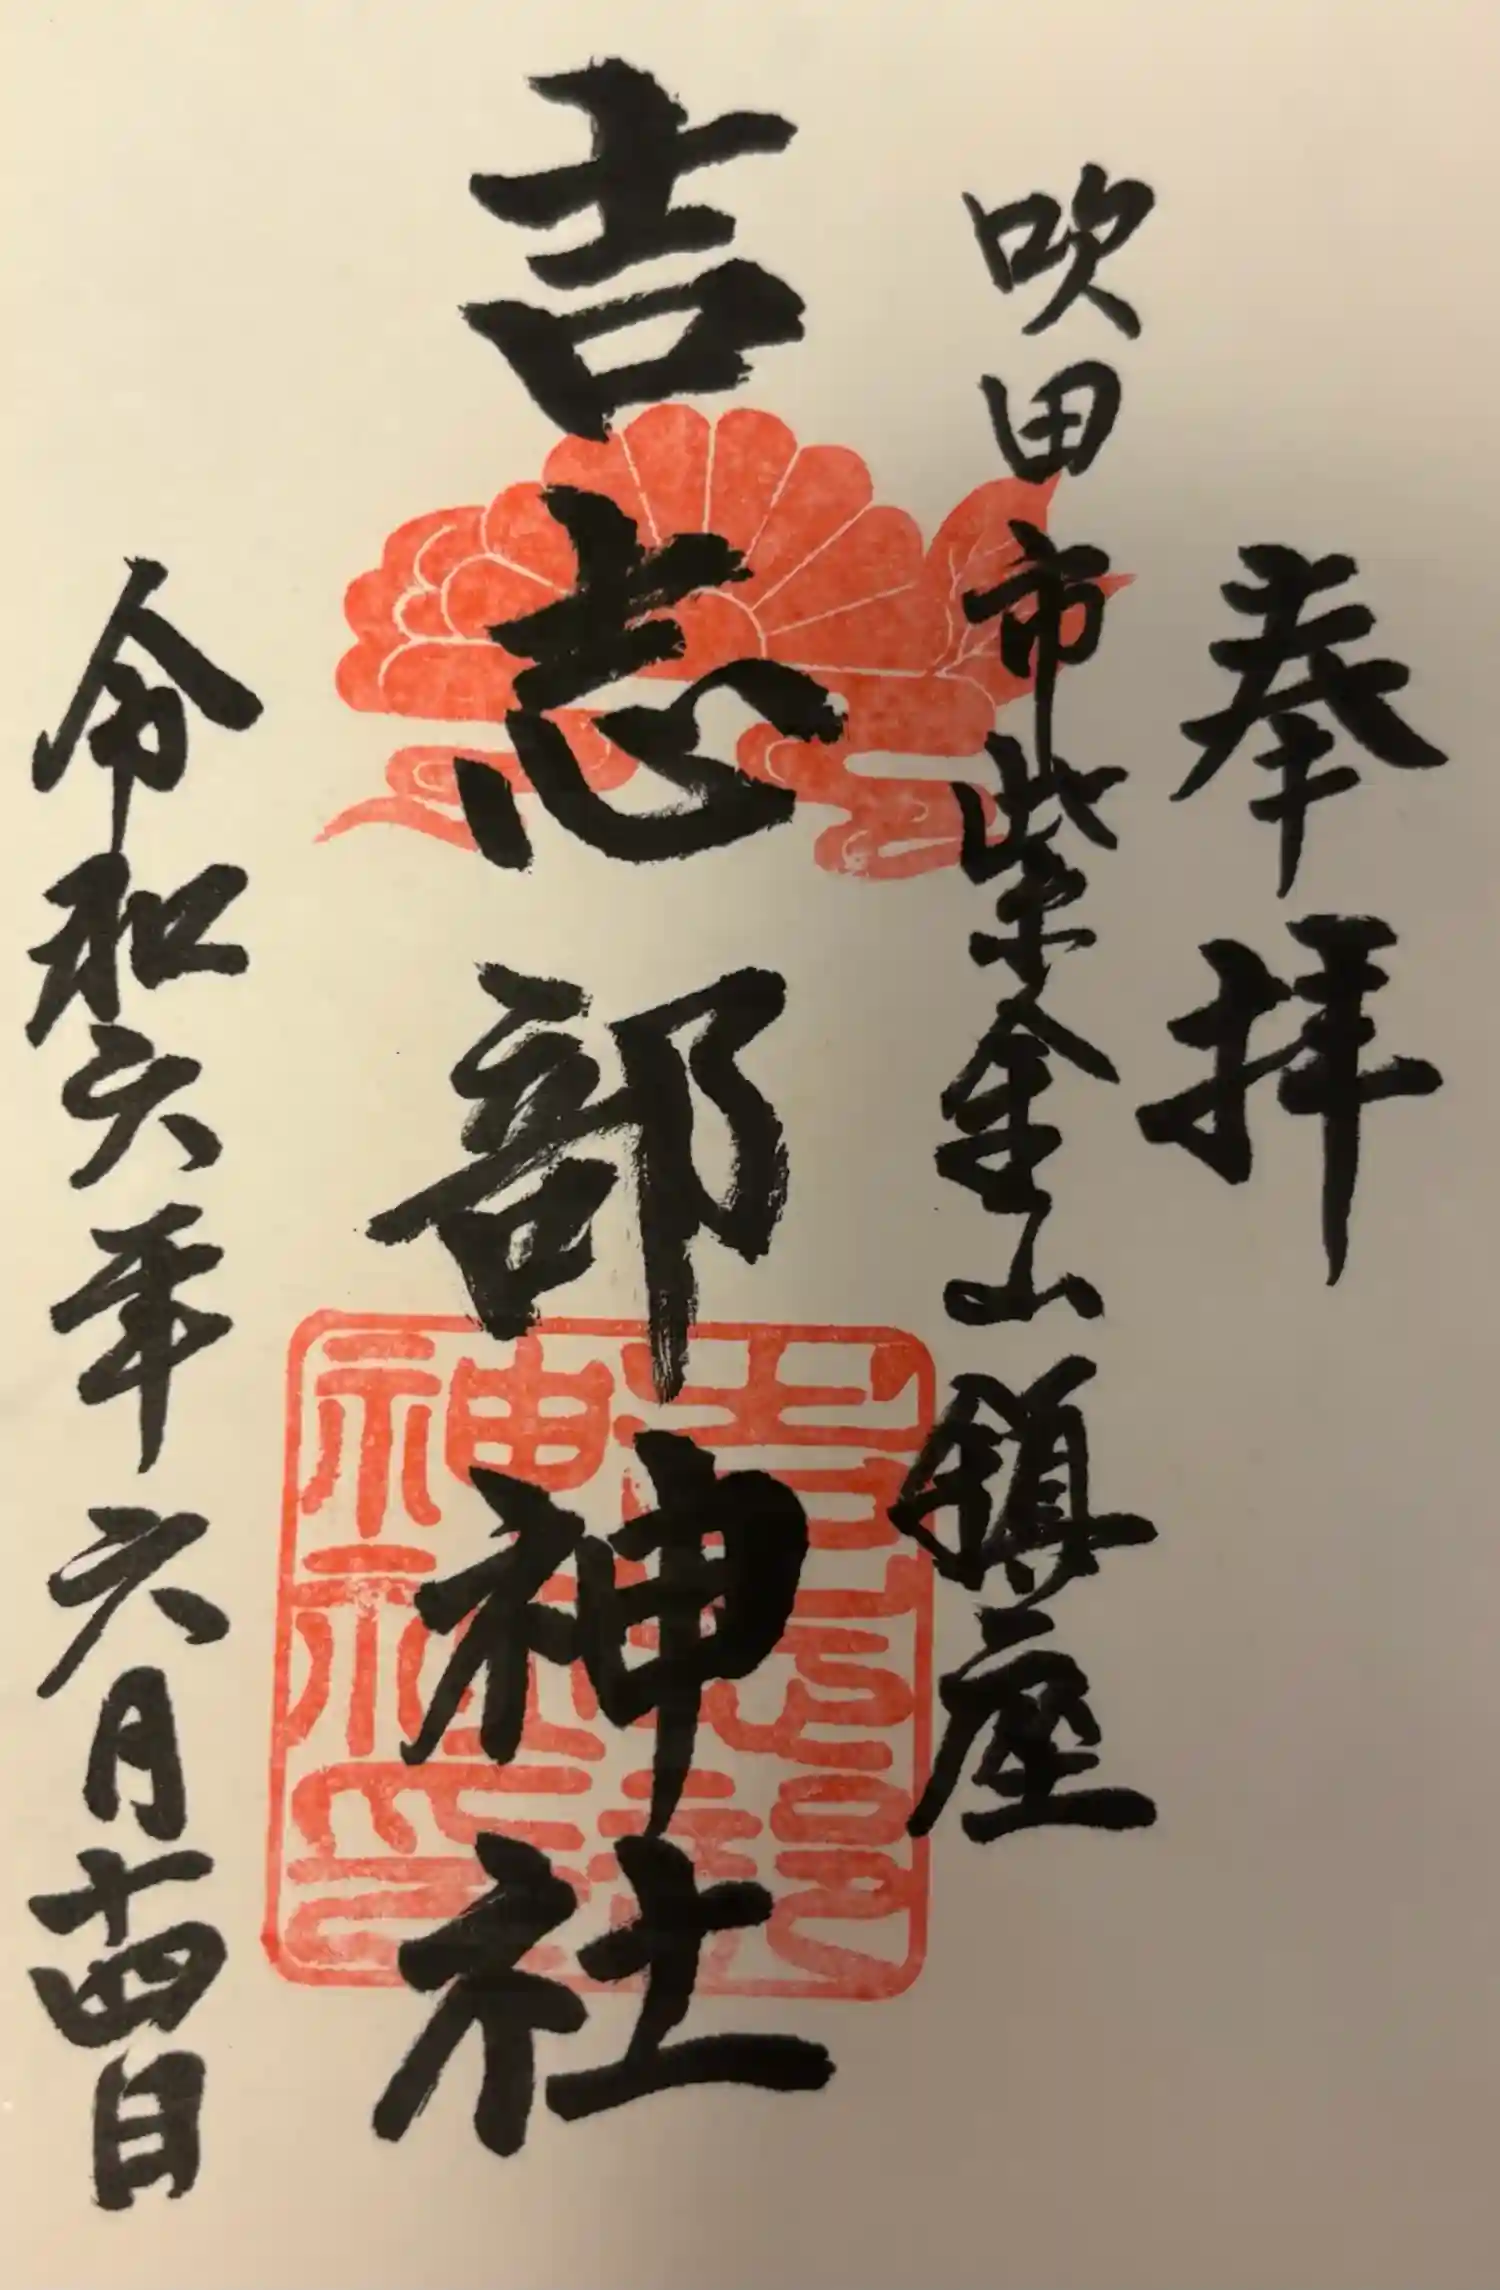 奉拝
吹田市紫金山鎮座
吉志部神社
令和六年六月十四日
吉志部
神社印